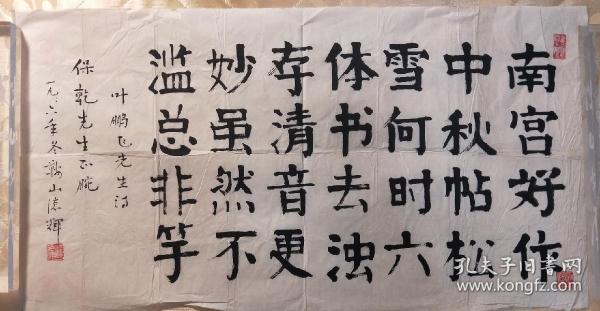 南宫好作
中秋帖松
雪何时六
体书去浊
存清音更
妙虽然不
滥总非竽
叶鹏飞先生诗
保乾先生正腕
一九八六年冬
孔夫子旧书网
www.kongfz.com